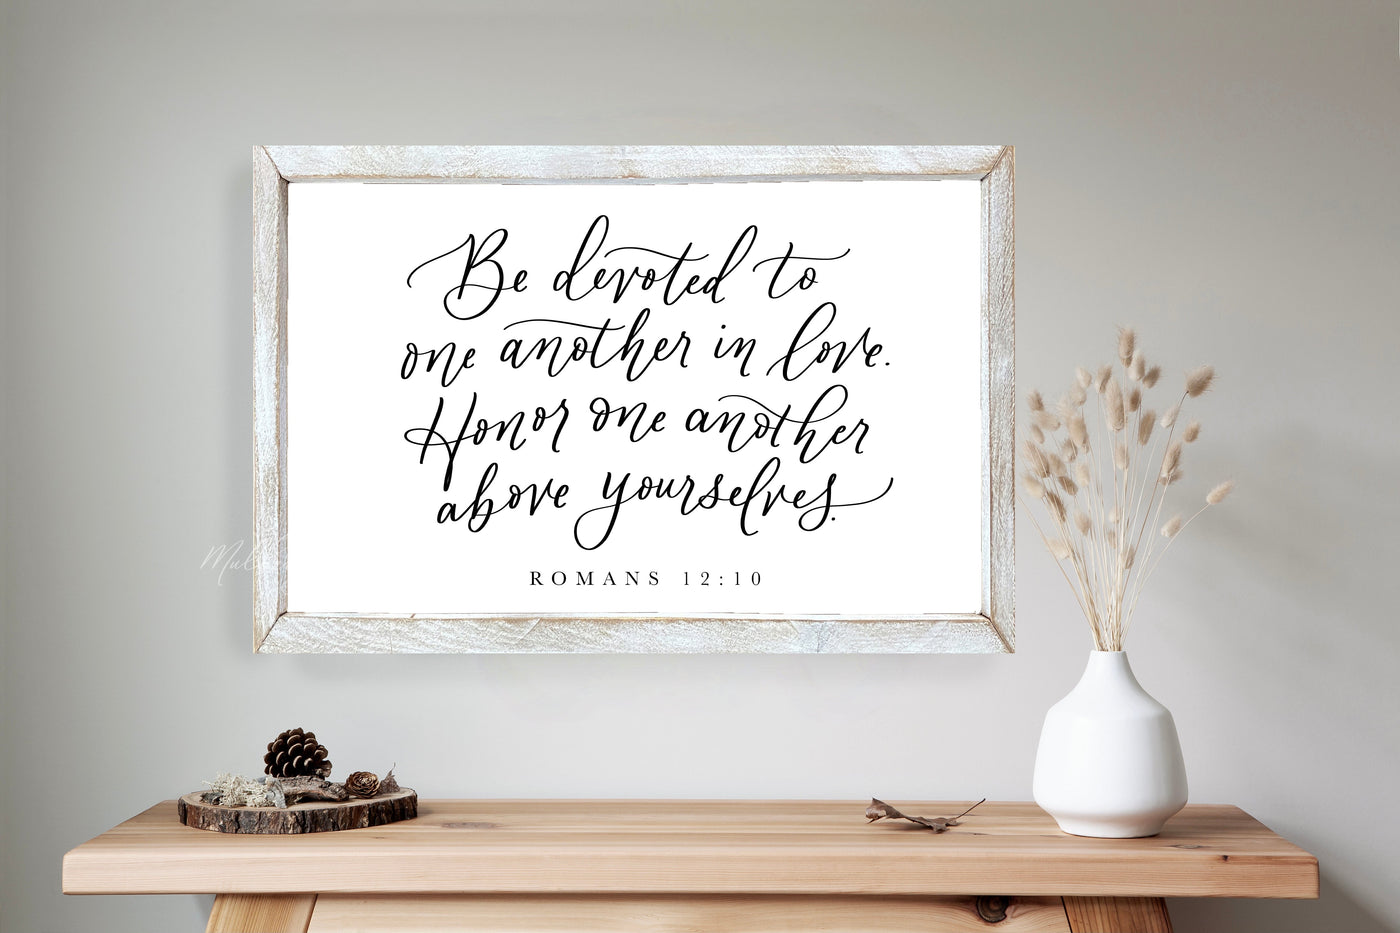 Be devoted to
one another in love.
Honor one another
above yourselves.
ROMANS 12:10